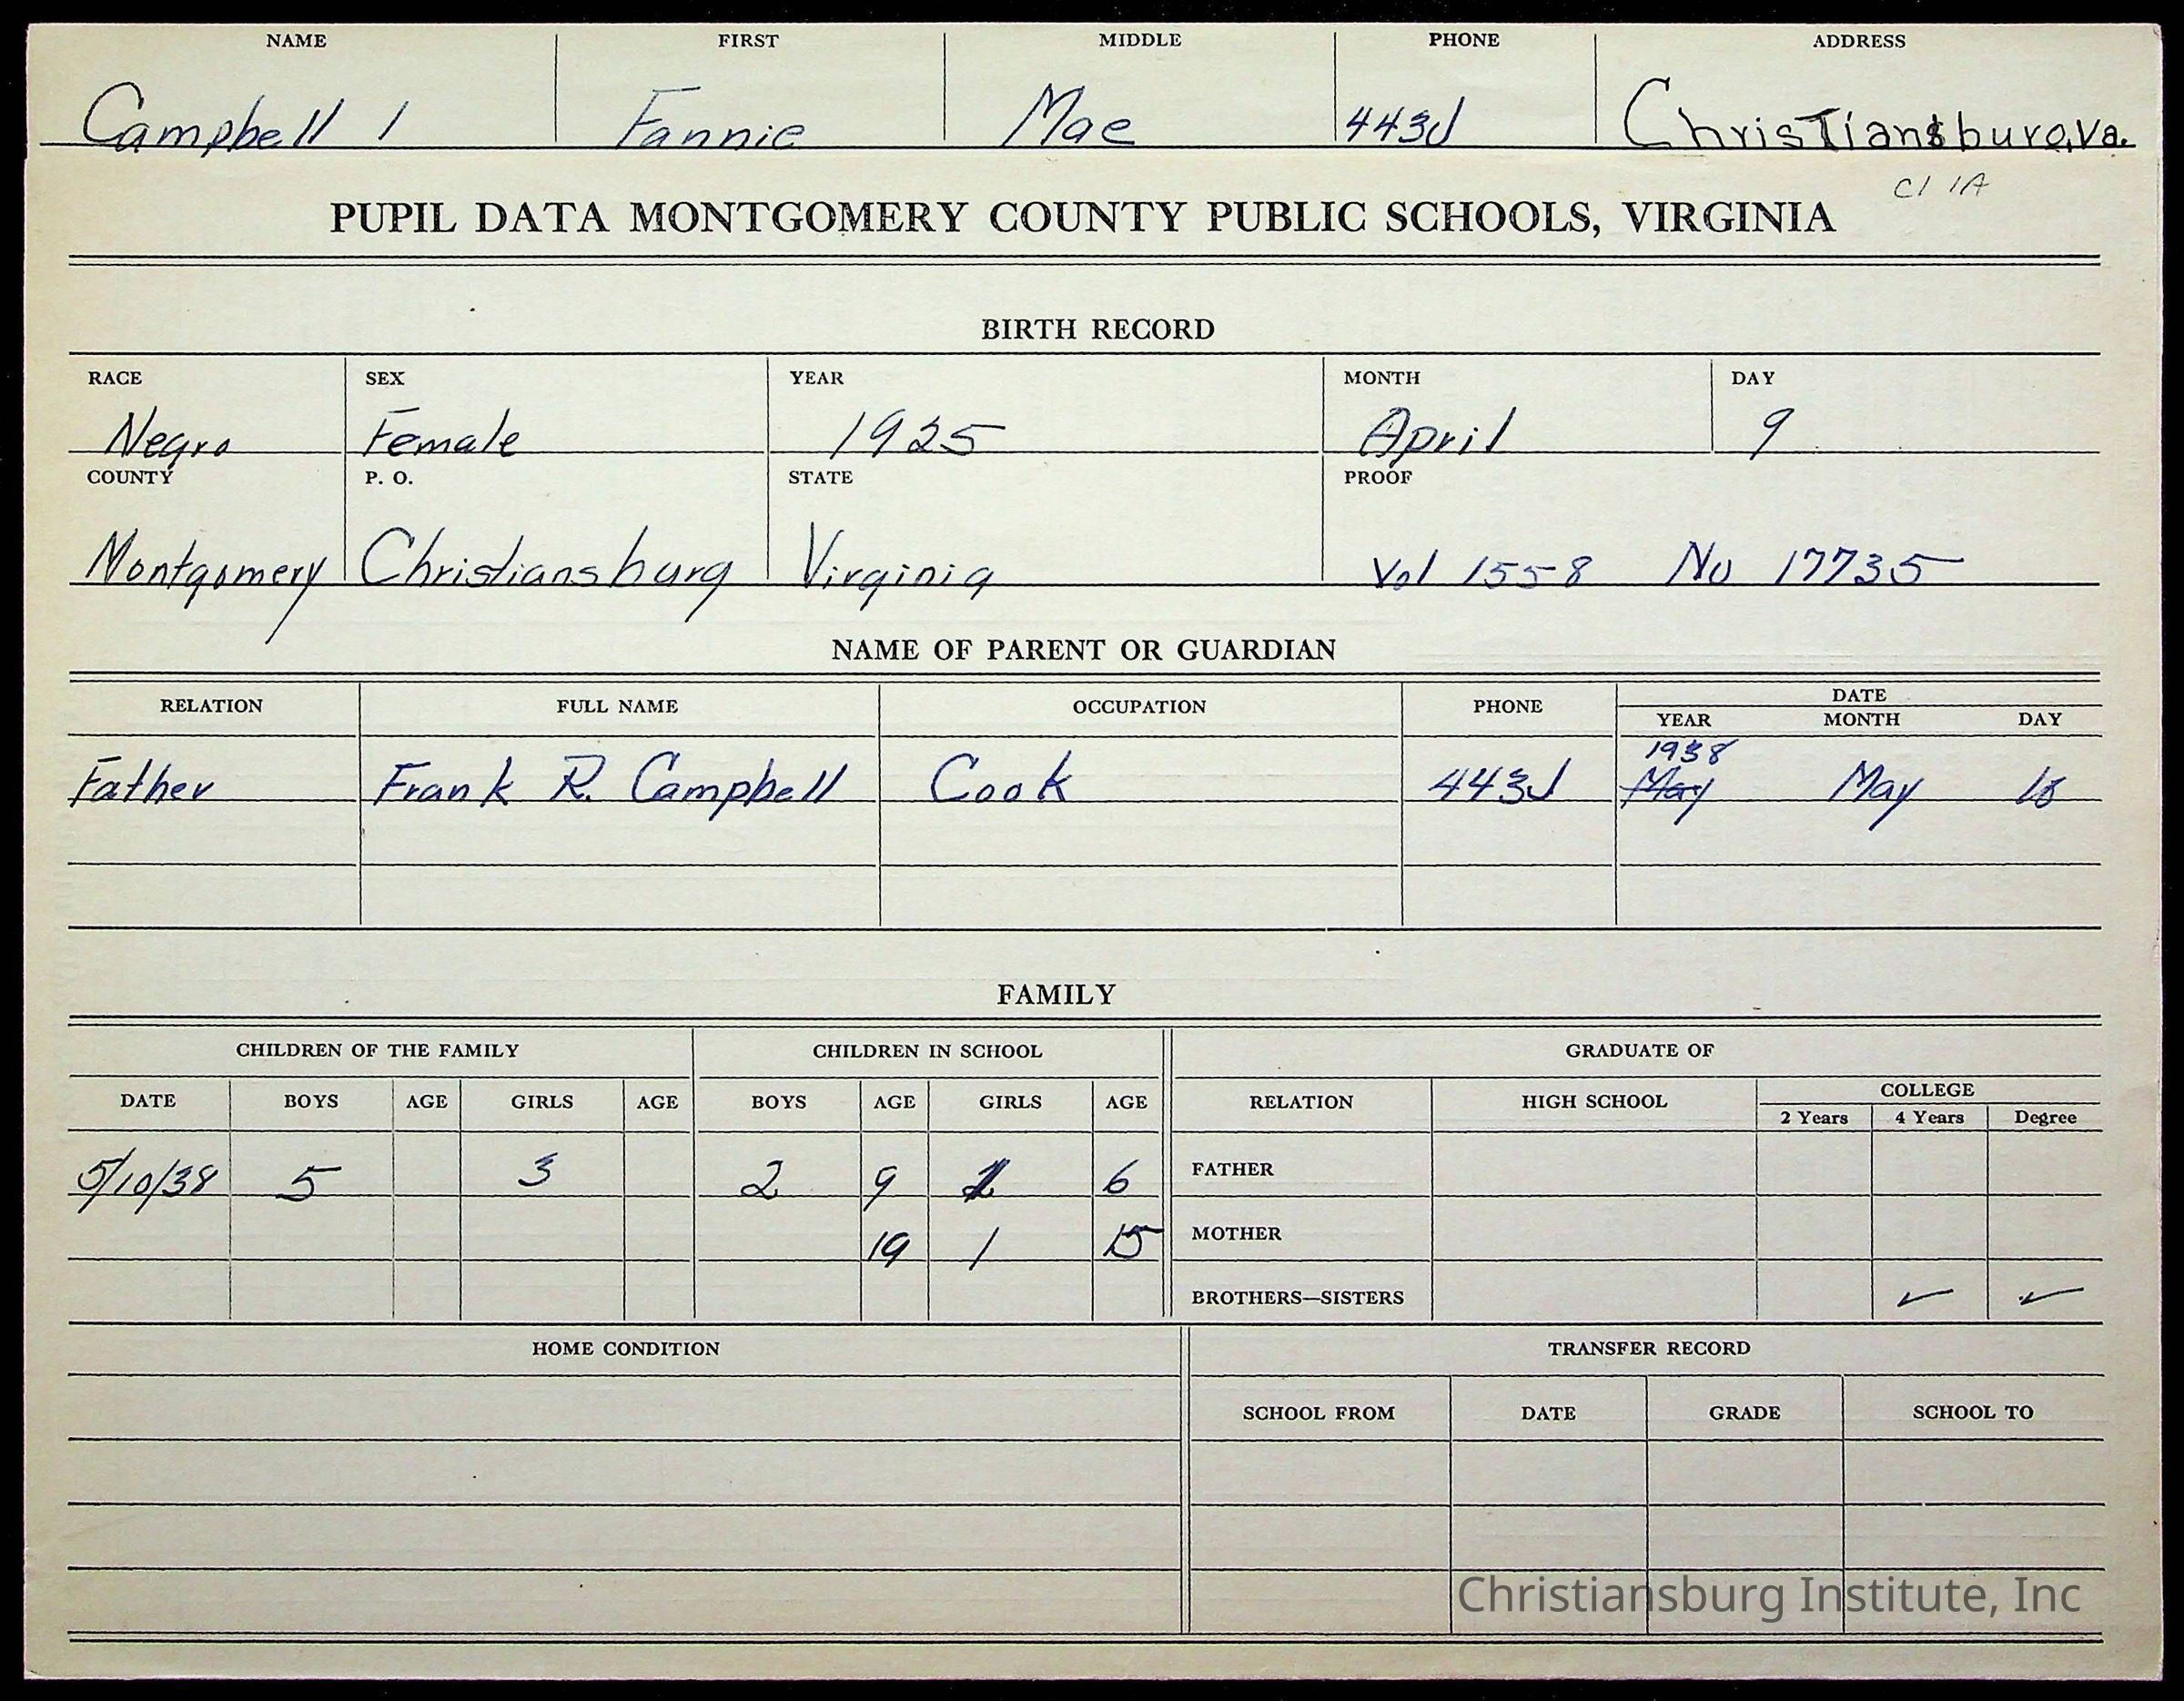 NAME FIRST MIDDLE PHONE ADDRESS
Campbell 1 Fannie Mae 443J Christiansburg, Va.
C1 1A
PUPIL DATA MONTGOMERY COUNTY PUBLIC SCHOOLS, VIRGINIA
BIRTH RECORD
RACE SEX YEAR MONTH DAY
Negro Female 1925 April 9
COUNTY P. O. STATE PROOF
Montgomery Christiansburg Virginia Vol 1558 No 17735
NAME OF PARENT OR GUARDIAN
RELATION FULL NAME OCCUPATION PHONE DATE
YEAR MONTH DAY
1938
Father Frank R. Campbell Cook 443J May May
FAMILY
CHILDREN OF THE FAMILY CHILDREN IN SCHOOL GRADUATE OF
DATE BOYS AGE GIRLS AGE BOYS AGE GIRLS AGE RELATION HIGH SCHOOL COLLEGE
2 Years 4 Years Degree
5/10/38 5 3 2 9 6 FATHER
19 1 15 MOTHER
BROTHERS—SISTERS ✓ ✓
HOME CONDITION TRANSFER RECORD
SCHOOL FROM DATE GRADE SCHOOL TO
Christiansburg Institute, Inc